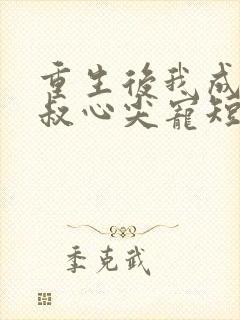 重生後我成
叔心尖寵短
季克武